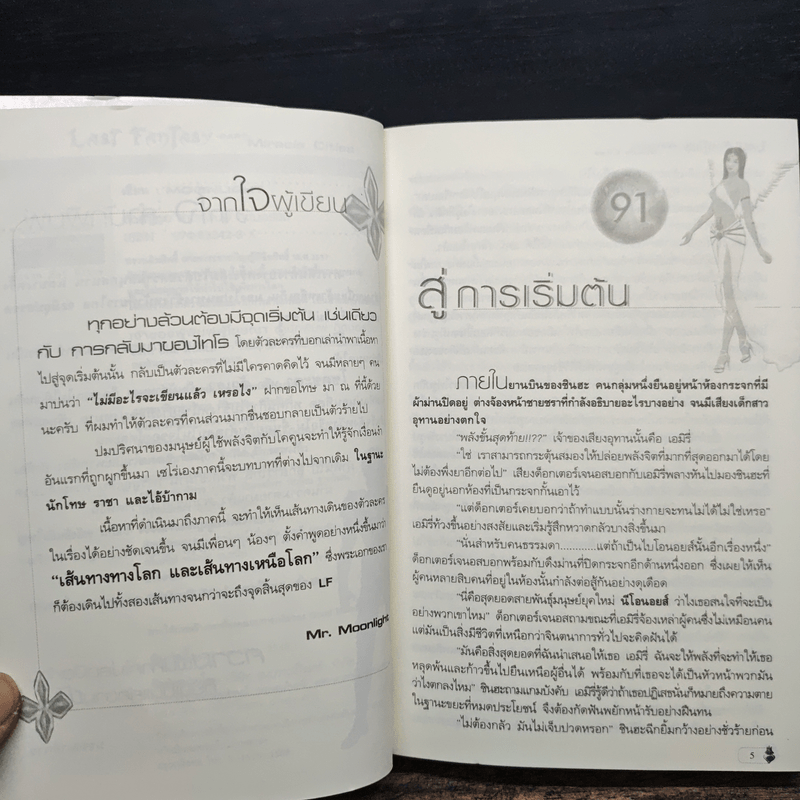 จากใจผู้เขียน
ทุกอย่างล้วนต้องมีจุดเริ่มต้น เช่นเดียว
กับ การกลับมาของไทโร โดยตัวละครที่บอกเล่านำพาเนื้อหา
ไปสู่จุดเริ่มต้นนั้น กลับเป็นตัวละครที่ไม่มีใครคาดคิดไว้ จนมีหลายๆ คน
มาบ่นว่า "ไม่มีอะไรจะเขียนแล้ว เหรอไง" ฝากขอโทษ มา ณ ที่นี้ด้วย
นะครับ ที่ผมทำให้ตัวละครที่คนส่วนมากชื่นชอบกลายเป็นตัวร้ายไป
ปมปริศนาของมนุษย์ผู้ใช้พลังจิตกับโคคูนจะทำให้รู้จักเงื่อนงำ
อันแรกที่ถูกผูกขึ้นมา เซโร่เองภาคนี้จะบทบาทที่ต่างไปจากเดิม ในฐานะ
นักโทษ ราชา และไอ้บ้ากาม
เนื้อหาที่ดำเนินมาถึงภาคนี้ จะทำให้เห็นเส้นทางเดินของตัวละคร
ในเรื่องได้อย่างชัดเจนขึ้น จนมีเพื่อนๆ น้องๆ ตั้งคำพูดอย่างหนึ่งขึ้นมาว่า
"เส้นทางทางโลก และเส้นทางเหนือโลก" ซึ่งพระเอกของเรา
ก็ต้องเดินไปทั้งสองเส้นทางจนกว่าจะถึงจุดสิ้นสุดของ LF
Mr. Moonlight
91
สู่ การเริ่มต้น
ภายในยานบินของชินฮะ คนกลุ่มหนึ่งยืนอยู่หน้าห้องกระจกที่มี
ผ้าม่านปิดอยู่ ต่างจ้องหน้าชายชราที่กำลังอธิบายอะไรบางอย่าง จนมีเสียงเด็กสาว
อุทานอย่างตกใจ
"พลังขั้นสุดท้าย!!??" เจ้าของเสียงอุทานนั้นคือ เอมิรี่
"ใช่ เราสามารถกระตุ้นสมองให้ปล่อยพลังจิตที่มากที่สุดออกมาได้โดย
ไม่ต้องพึ่งยาอีกต่อไป" เสียงด็อกเตอร์เจนอสบอกกับเอมิรี่พลางหันไปมองชินฮะที่
ยืนดูอยู่นอกห้องที่เป็นกระจกกั้นเอาไว้
"แต่ด็อกเตอร์เคยบอกว่าถ้าทำแบบนั้นร่างกายจะทนไม่ได้ไม่ใช่เหรอ"
เอมิรี่ท้วงขึ้นอย่างสงสัยและเริ่มรู้สึกหวาดกลัวบางสิ่งขึ้นมา
"นั่นสำหรับคนธรรมดา............แต่ถ้าเป็นไบโอนอยส์นั้นอีกเรื่องหนึ่ง"
ด็อกเตอร์เจนอสบอกพร้อมกับดึงม่านที่ปิดกระจกอีกด้านหนึ่งออก ซึ่งเผยให้เห็น
ผู้คนหลายสิบคนที่อยู่ในห้องนั้นกำลังต่อสู้กันอย่างดุเดือด
"นี่คือสุดยอดสายพันธุ์มนุษย์ยุคใหม่ นีโอนอยส์ ว่าไงเธอสนใจที่จะเป็น
อย่างพวกเขาไหม" ด็อกเตอร์เจนอสถามขณะที่เอมิรี่จ้องเหล่าผู้คนซึ่งไม่เหมือนคน
แต่มันเป็นสิ่งมีชีวิตที่เหนือกว่าจินตนาการทั่วไปจะคิดฝันได้
"มันคือสิ่งสุดยอดที่ฉันนำเสนอให้เธอ เอมิรี่ ฉันจะให้พลังที่จะทำให้เธอ
หลุดพ้นและก้าวขึ้นไปยืนเหนือผู้อื่นได้ พร้อมกับที่เธอจะได้เป็นหัวหน้าพวกมัน
ว่าไงตกลงไหม" ชินฮะถามแกมบังคับ เอมิรี่รู้ดีว่าถ้าเธอปฏิเสธนั่นก็หมายถึงความตาย
ในฐานะขยะที่หมดประโยชน์ จึงต้องกัดฟันพยักหน้ารับอย่างฝืนทน
"ไม่ต้องกลัว มันไม่เจ็บปวดหรอก" ชินฮะฉีกยิ้มกว้างอย่างชั่วร้ายก่อน
5